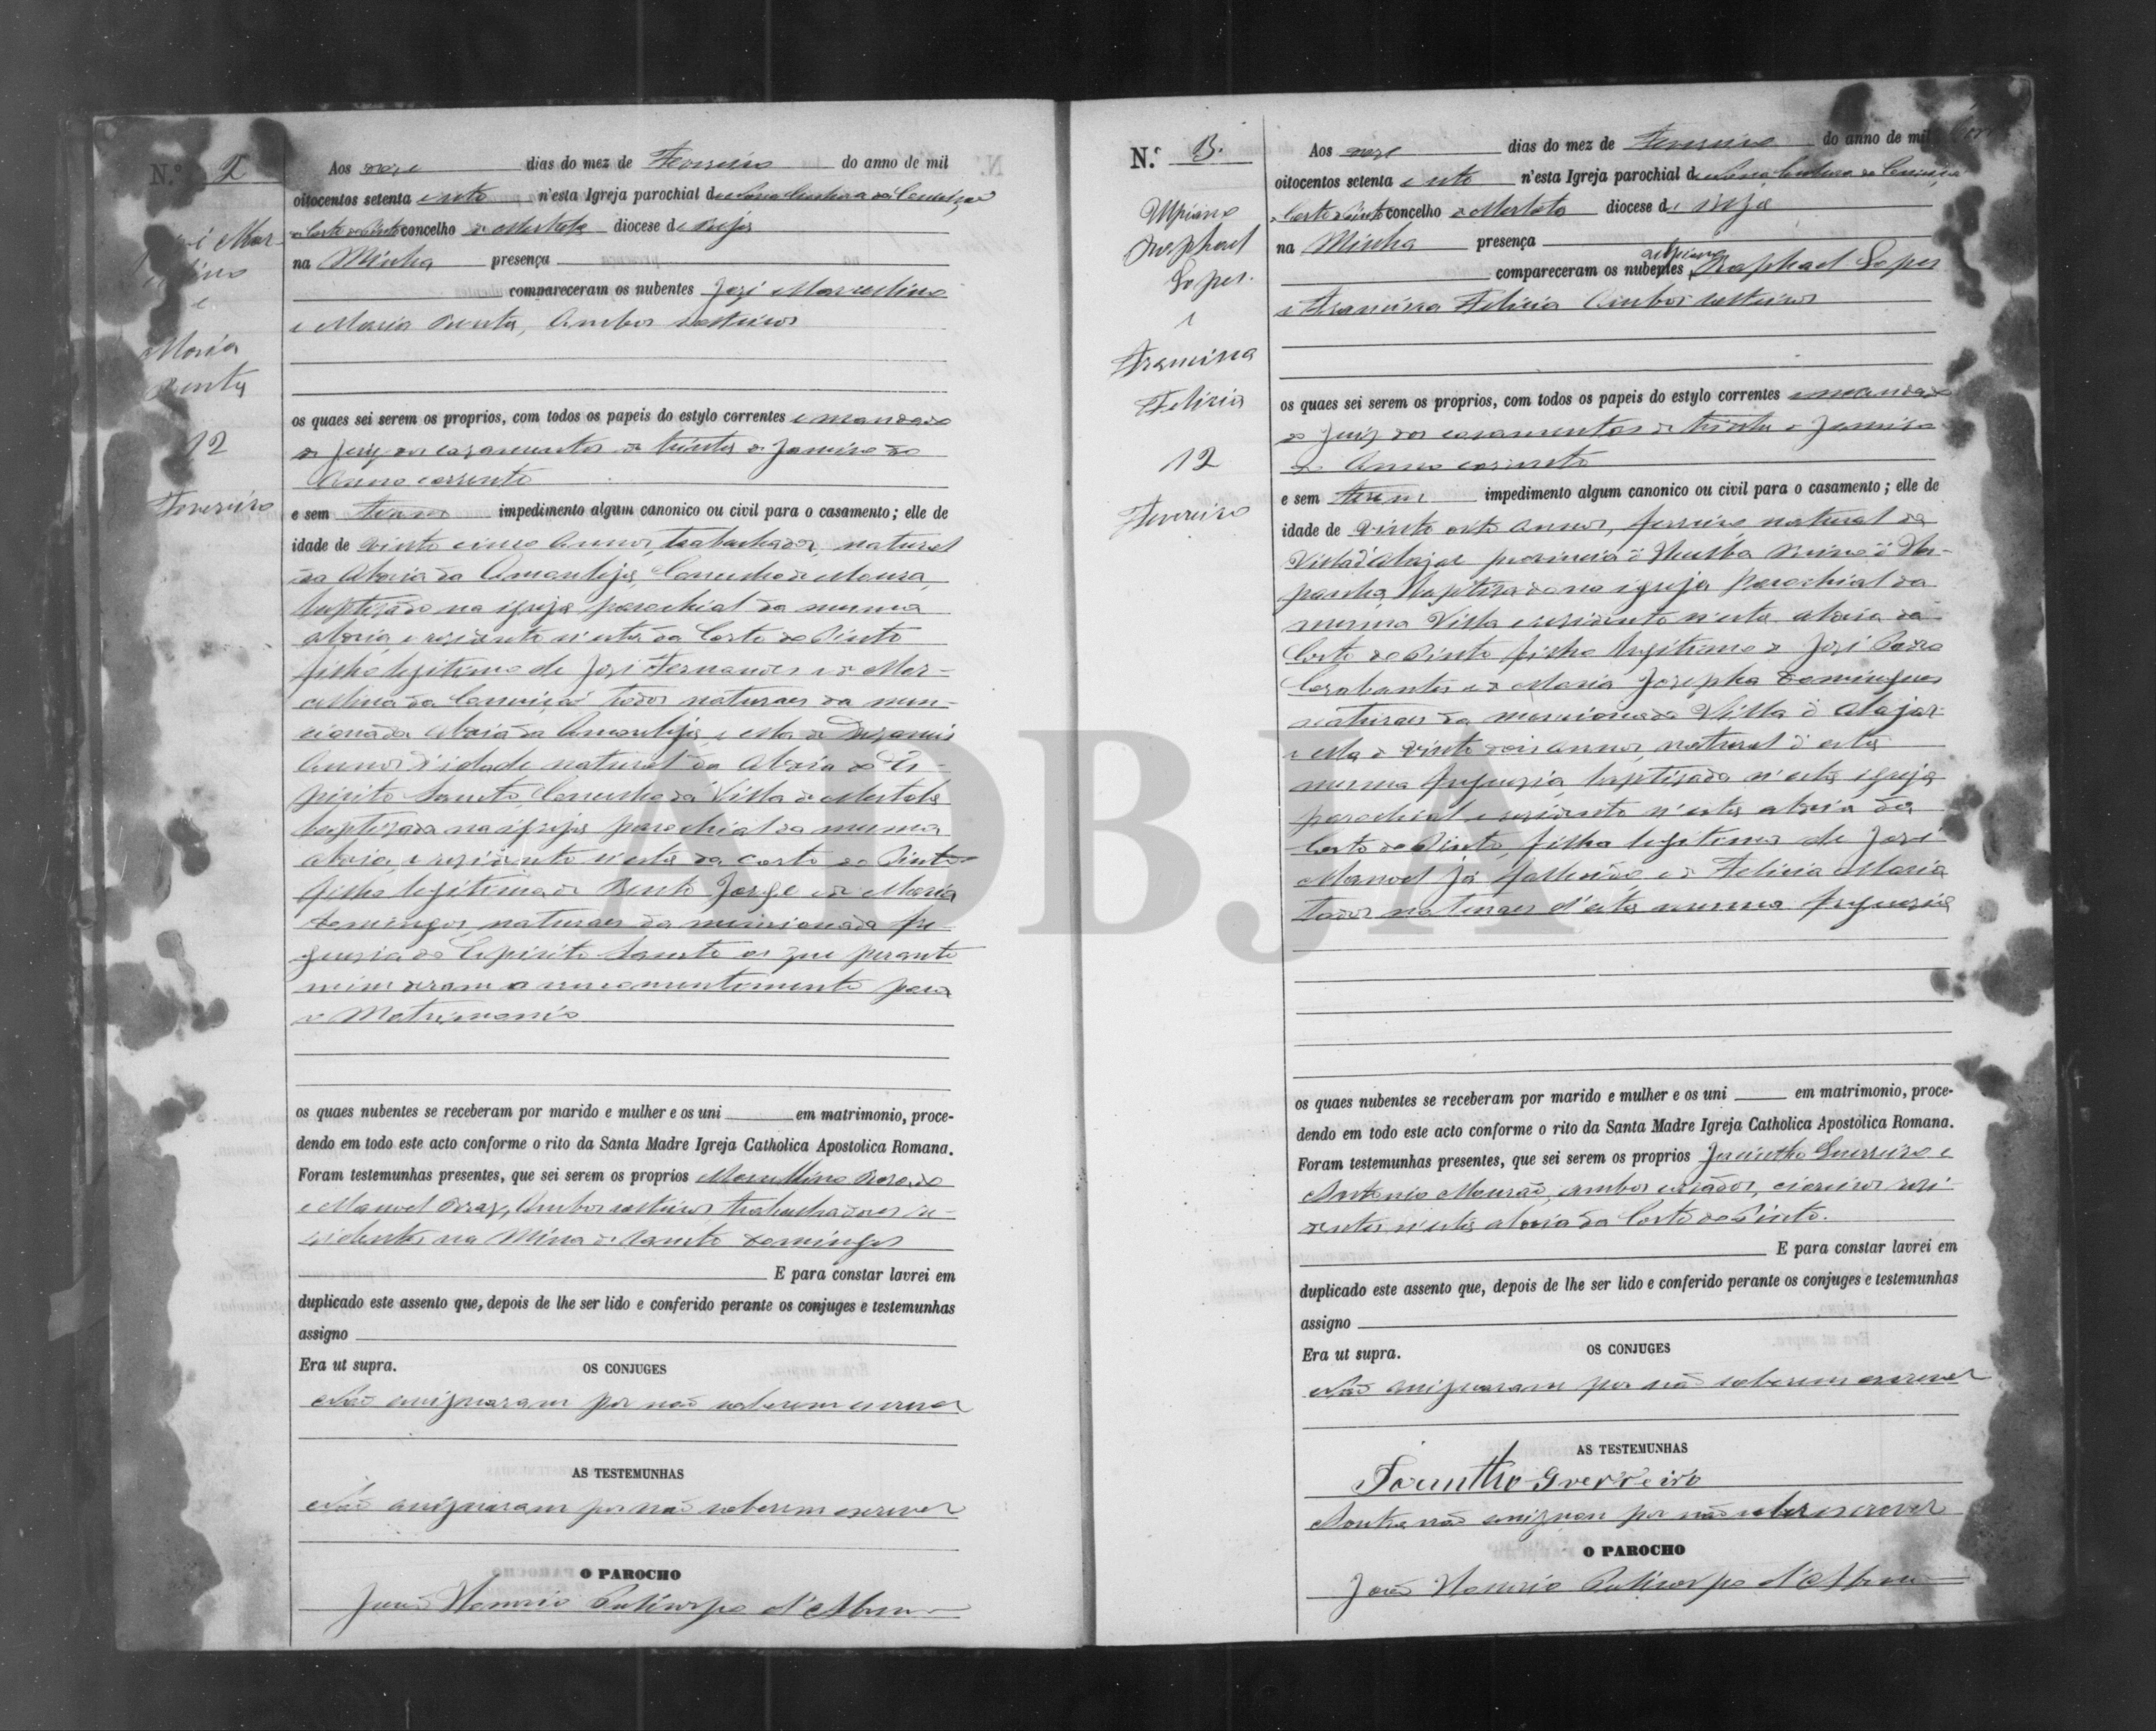 N.º 2
José Mar-
cellino
e
Maria
Benta
12
Fevereiro
Aos doze dias do mez de Fevereiro do anno de mil
oitocentos setenta e oito n'esta Igreja parochial de Nossa Senhora da Conceição
da Corte do Pinto concelho de Mertola diocese de Beja
na Minha presença
compareceram os nubentes José Marcellino
e Maria Benta, Ambos solteiros
os quaes sei serem os proprios, com todos os papeis do estylo correntes e mandado
do Juiz dos casamentos de trinta de Janeiro do
Anno corrente
e sem terem impedimento algum canonico ou civil para o casamento; elle de
idade de vinte cinco Annos, trabalhador, natural
da Aldeia da Amareleja, Concelho de Moura,
baptizado na igreja parochial da mesma
aldeia, e residente n'esta da Corte do Pinto
filho legitimo de José Fernandes e de Mar-
cellina da Conceição todos naturaes da men-
cionada Aldeia da Amareleja, e ella de Dezaseis
Annos d'idade natural da Aldeia do Es-
pirito Santo, Concelho da Villa de Mertola
baptizada na igreja parochial da mesma
aldeia, e residente n'esta da Corte do Pinto
filha legitima de Bento Jorge e de Maria
Domingos, naturaes da mencionada fre-
guesia do Espirito Santo os que perante
mim deram o seu consentimento para
o Matrimonio
os quaes nubentes se receberam por marido e mulher e os uni em matrimonio, proce-
dendo em todo este acto conforme o rito da Santa Madre Igreja Catholica Apostolica Romana.
Foram testemunhas presentes, que sei serem os proprios Marcellino Rosado
e Manoel Braz, Ambos solteiros trabalhadores re-
sidentes na Mina de Santo Domingos
E para constar lavrei em
duplicado este assento que, depois de lhe ser lido e conferido perante os conjuges e testemunhas
assigno
Era ut supra.
OS CONJUGES
Não assignaram por não saberem escrever
AS TESTEMUNHAS
Não assignaram por não saberem escrever
O PAROCHO
João Honorio Policarpo d'Abreu
N.º 3.
Ulpiano
Raphael
Lopes.
e
Francisca
Felicia
12
Fevereiro
Aos doze dias do mez de Fevereiro do anno de mil
oitocentos setenta e oito n'esta Igreja parochial de Nossa Senhora da Conceição
da Corte do Pinto concelho de Mertola diocese de Beja
na Minha presença
compareceram os nubentes Ulpiano Raphael Lopes
e Francisca Felicia Ambos solteiros
os quaes sei serem os proprios, com todos os papeis do estylo correntes e mandado
do Juiz dos casamentos de trinta de Janeiro
do Anno corrente
e sem terem impedimento algum canonico ou civil para o casamento; elle de
idade de vinte oito Annos, ferreiro natural da
Villa d'Alajar provincia d'Huelba Reino d'Hes-
panha, baptizado na igreja parochial da
mesma Villa e residente n'esta aldeia da
Corte do Pinto filho legitimo de José
e de Maria Josepha Domingues
naturaes da mencionada Villa d'Alajar
e ella de vinte dois annos, natural d'esta
mesma freguesia, baptizada n'esta igreja
parochial e residente n'esta aldeia da
Corte do Pinto, filha legitima de José
Manoel já fallecido e de Felicia Maria
todos naturaes d'esta mesma freguesia
os quaes nubentes se receberam por marido e mulher e os uni em matrimonio, proce-
dendo em todo este acto conforme o rito da Santa Madre Igreja Catholica Apostolica Romana.
Foram testemunhas presentes, que sei serem os proprios Jacintho Guerreiro e
Antonio Mourão, ambos casados, resi-
dentes n'esta aldeia da Corte do Pinto.
E para constar lavrei em
duplicado este assento que, depois de lhe ser lido e conferido perante os conjuges e testemunhas
assigno
Era ut supra.
OS CONJUGES
Não assignaram por não saberem escrever
AS TESTEMUNHAS
Jacintho Guerreiro
A outra não assignou por não saber escrever
O PAROCHO
João Honorio Policarpo d'Abreu
ADBJA